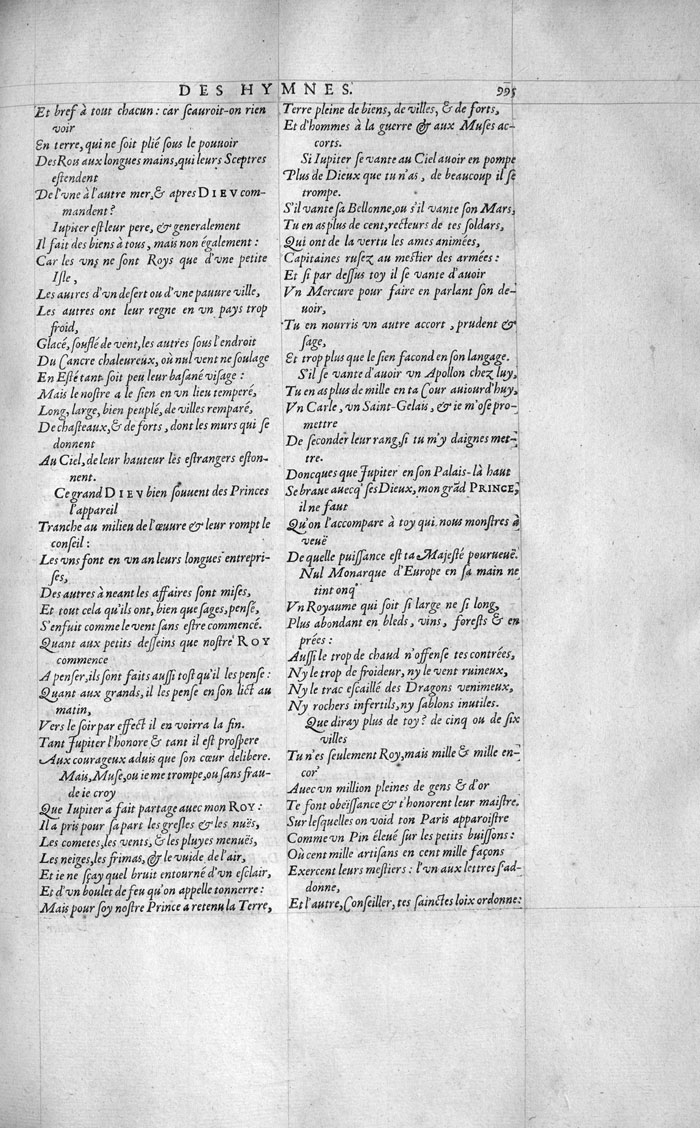 DES HYMNES. 995
Et bref à tout chacun: car sçauroit-on rien
voir
En terre, qui ne soit plié sous le pouuoir
Des Rois aux longues mains, qui leurs Sceptres
estendent
De l'vne à l'autre mer, & apres DIEV com-
mandent?
Iupiter est leur pere, & generalement
Il fait des biens à tous, mais non également:
Car les vns ne sont Roys que d'vne petite
Isle,
Les autres d'vn desert ou d'vne pauure ville,
Les autres ont leur regne en vn pays trop
froid,
Glacé, souflé de vent, les autres sous l'endroit
Du Cancre chaleureux, où nul vent ne soulage
En Esté tant soit peu leur basané visage:
Mais le nostre a le sien en vn lieu temperé,
Long, large, bien peuplé, de villes remparé,
De chasteaux, & de forts, dont les murs qui se
donnent
Au Ciel, de leur hauteur les estrangers eston-
nent.
Ce grand DIEV bien souuent des Princes
l'appareil
Tranche au milieu de l'œuure & leur rompt le
conseil:
Les vns font en vn an leurs longues entrepri-
ses,
Des autres à neant les affaires sont mises,
Et tout cela qu'ils ont, bien que sages, pensé,
S'enfuit comme le vent sans estre commencé.
Quant aux petits desseins que nostre ROY
commence
A penser, ils sont faits aussi tost qu'il les pense:
Quant aux grands, il les pense en son lict au
matin,
Vers le soir par effect il en voirra la fin.
Tant Jupiter l'honore & tant il est prospere
Aux courageux aduis que son cœur delibere.
Mais, Muse, ou ie me trompe, ou sans frau-
de ie croy
Que Iupiter a fait partage auec mon ROY:
Il a pris pour sa part les gresles & les nuës,
Les cometes, les vents, & les pluyes menuës,
Les neiges, les frimas, & le vuide de l'air,
Et ie ne sçay quel bruit entourné d'vn esclair,
Et d'vn boulet de feu qu'on appelle tonnerre:
Mais pour soy nostre Prince a retenu la Terre,
Terre pleine de biens, de villes, & de forts,
Et d'hommes à la guerre & aux Muses ac-
corts.
Si Iupiter se vante au Ciel auoir en pompe
Plus de Dieux que tu n'as, de beaucoup il se
trompe.
S'il vante sa Bellonne, ou s'il vante son Mars,
Tu en as plus de cent, recteurs de tes soldars,
Qui ont de la vertu les ames animées,
Capitaines rusez au mestier des armées:
Et si par dessus toy il se vante d'auoir
Vn Mercure pour faire en parlant son de-
uoir,
Tu en nourris vn autre accort, prudent &
sage,
Et trop plus que le sien facond en son langage.
S'il se vante d'auoir vn Apollon chez luy,
Tu en as plus de mille en ta Cour auiourd'huy,
Vn Carle, vn Saint-Gelais, & ie m'ose pro-
mettre
De seconder leur rang, si tu m'y daignes met-
tre.
Doncques que Jupiter en son Palais là haut
Se braue auecq' ses Dieux, mon grãd PRINCE,
il ne faut
Qu'on l'accompare à toy qui nous monstres à
veuë
De quelle puissance est ta Majesté pourueuë.
Nul Monarque d'Europe en sa main ne
tint onq'
Vn Royaume qui soit si large ne si long,
Plus abondant en bleds, vins, forests & en
prées:
Aussi le trop de chaud n'offense tes contrées,
Ny le trop de froideur, ny le vent ruineux,
Ny le trac escaillé des Dragons venimeux,
Ny rochers infertils, ny sablons inutiles.
Que diray plus de toy? de cinq ou de six
villes
Tu n'es seulement Roy, mais mille & mille en-
cor'
Auec vn million pleines de gens & d'or
Te font obeïssance & t'honorent leur maistre.
Sur lesquelles on void ton Paris apparoistre
Comme vn Pin éleué sur les petits buissons:
Où cent mille artisans en cent mille façons
Exercent leurs mestiers: l'vn aux lettres s'ad-
donne,
Et l'autre, Conseiller, tes sainctes loix ordonne: